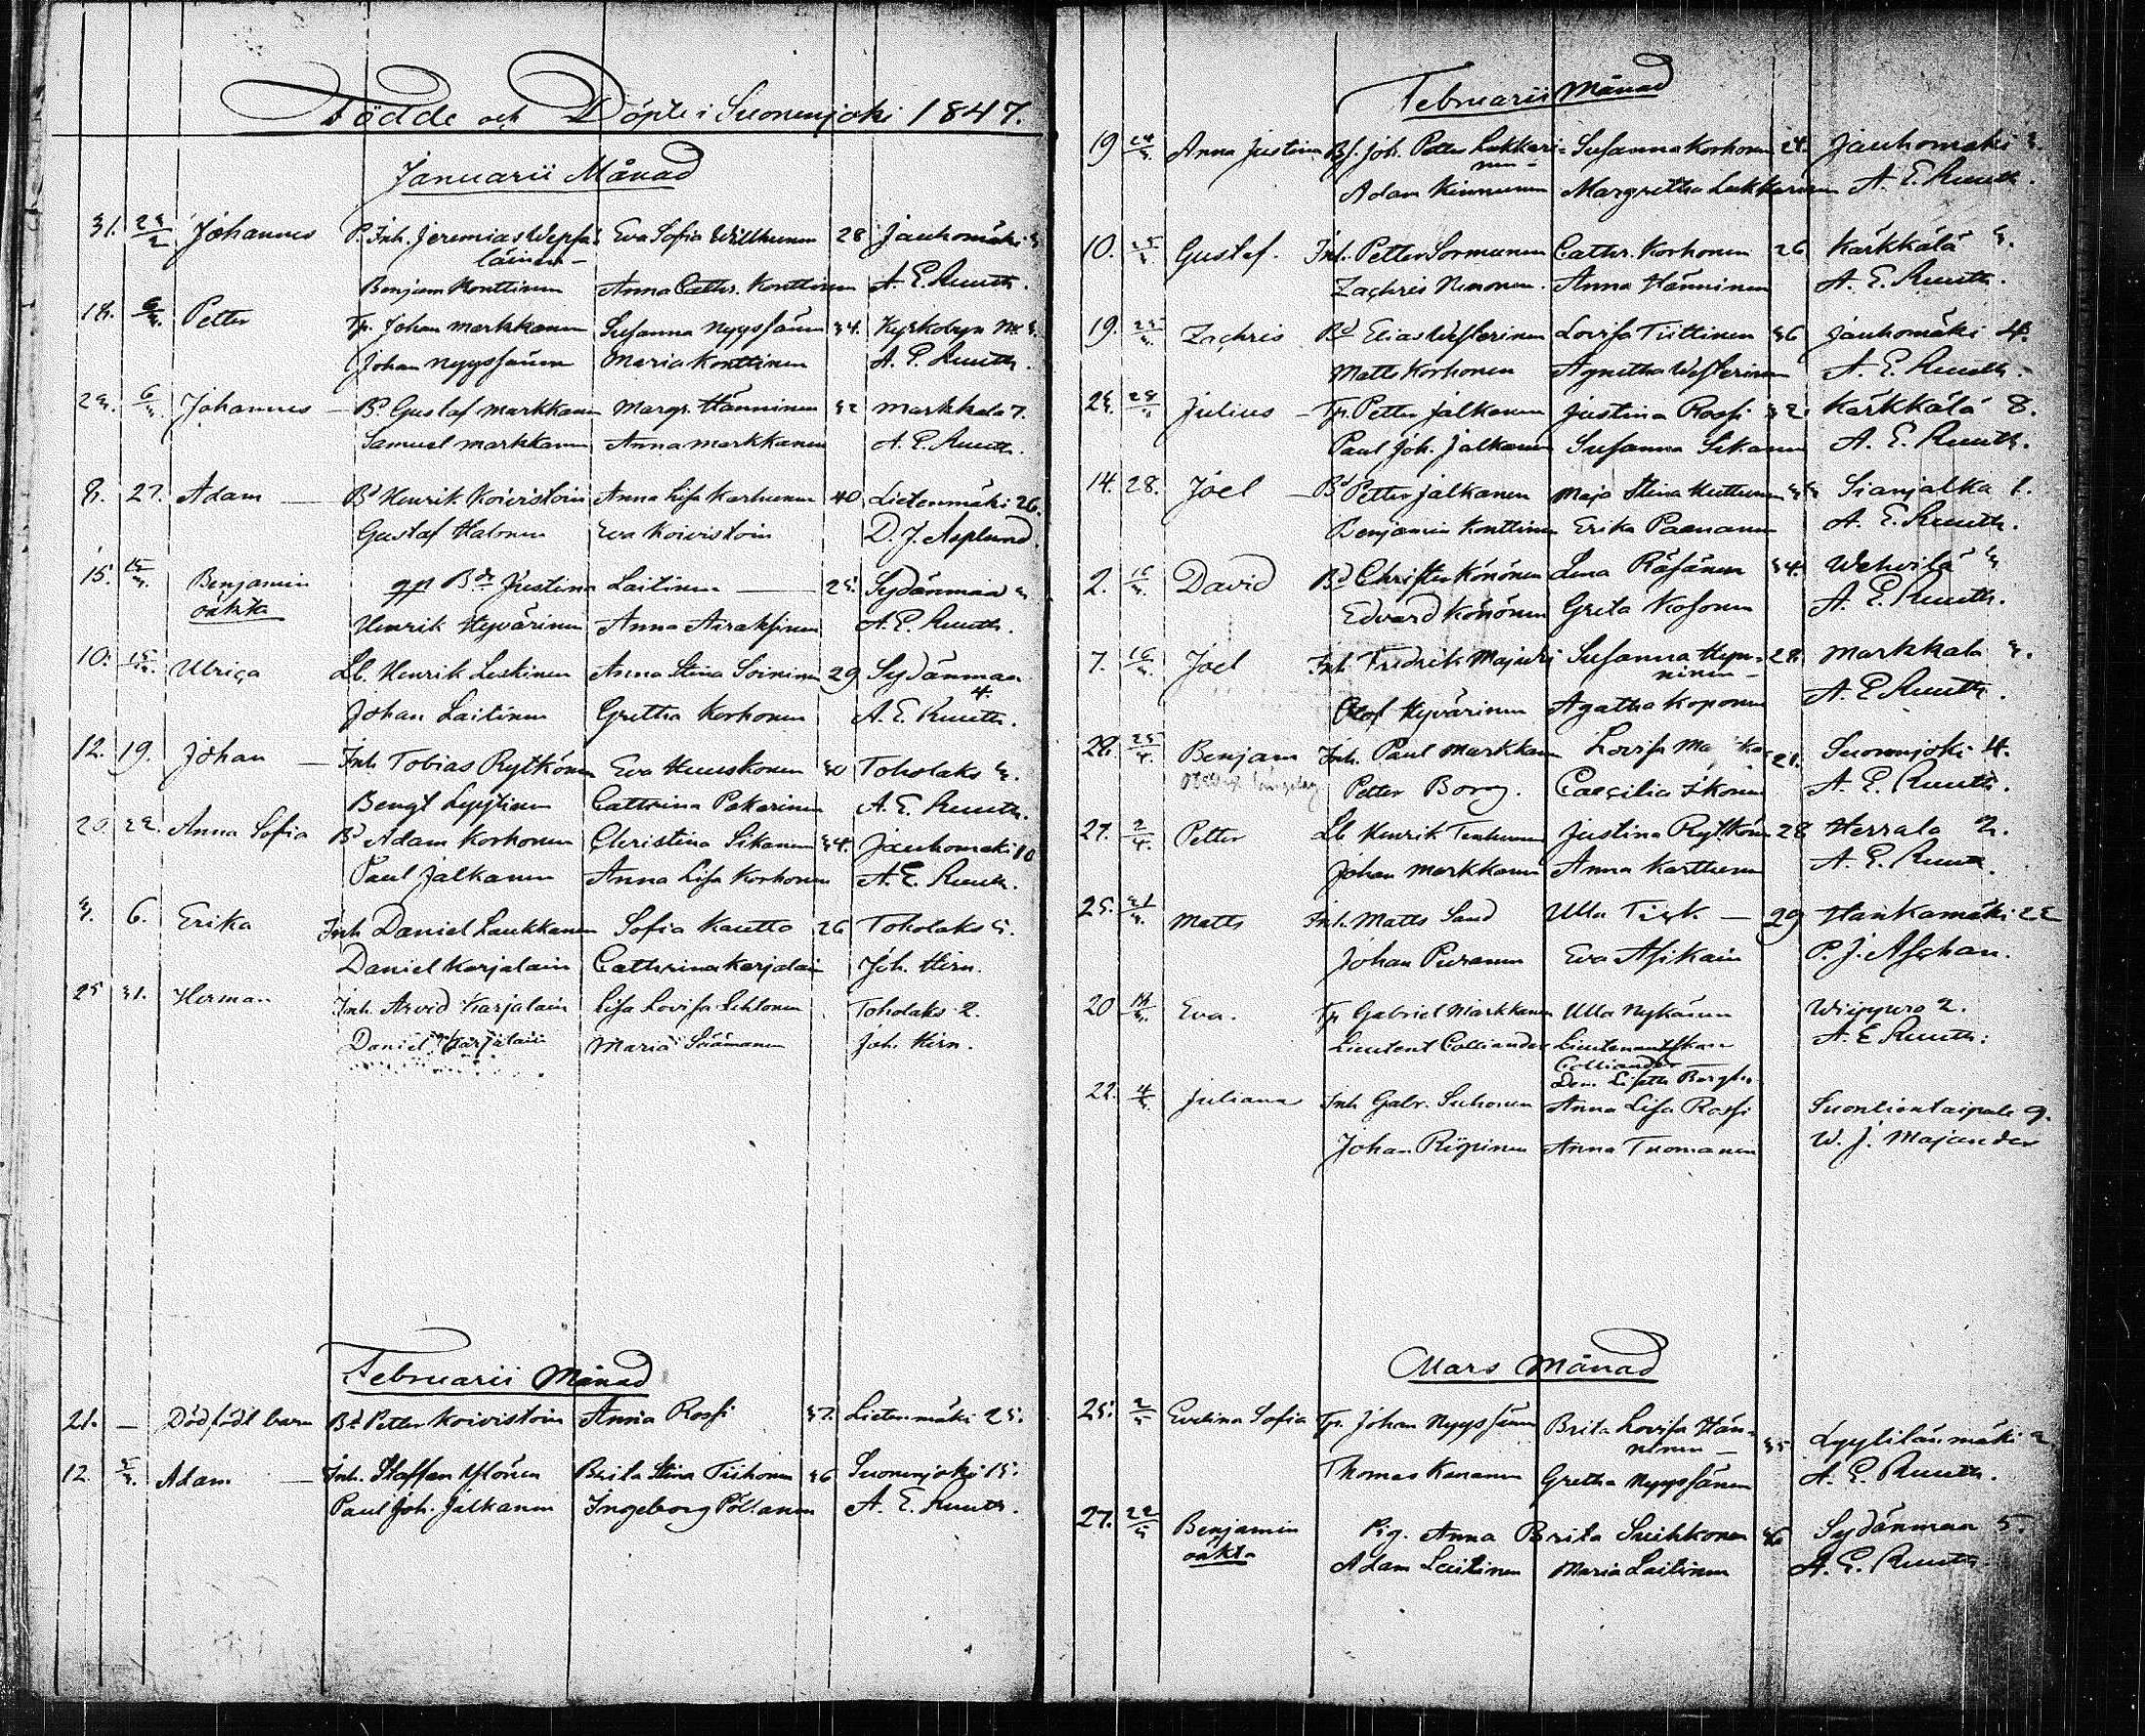 Födde och Döpte i Suonenjoki 1847.
Januarii Månad
31. 23/2 Johannes P. Inh. Jeremias Wepsä- Eva Sofia Willhunen 28 Jauhomäki 3
läinen –
Benjam Konttinen Anna Cathr. Konttinen A. E. Ruuth.
18. 6/3 Petter Tp. Johan Markkanen Susanna Nyyssönen 34. Kyrkobyn
Johan Nyyssönen Maria Konttinen A. E. Ruuth.
23. 6/3 Johannes – Bd Gustaf Markkanen Margr. Hänninen 32 Markkala 7.
Samuel Markkanen Anna Markkanen A. E. Ruuth.
8. 27. Adam — Bd Henrik Koivistoin Anna Lisa Karhunen 40 Lietenmäki 26.
Gustaf Halonen Eva Koivistoin D. J. Asplund.
15. Benjamin Bdr Justina Laitinen — 25. Sydänmaa 3
oäkta
Henrik Hyvärinen Anna Airaksinen A. E. Ruuth.
10. 15/3 Ulrica Lb. Henrik Leskinen Anna Stina Soininen 29 Sydänmaa
4.
Johan Laitinen Gretha Korhonen A. E. Ruuth.
12. 19. Johan — Inh Tobias Rytkönen Eva Huuskonen 30 Toholaks 3.
Bengt Lyytinen Cathrina Pakarinen A. E. Ruuth.
20. 22. Anna Sofia Bd Adam Korhonen Christina Sikanen 34. Jauhomäki 10
Paul Jalkanen Anna Lisa Korhonen A. E. Ruuth.
3. 6. Erika Inh Daniel Laukkanen Sofia Kautto 26 Toholaks 5.
Daniel Karjalain Cathrina Karjalain Joh. Hirn.
25 31. Herman Inh. Arvid Karjalain Lisa Lovisa Lehtonen Toholaks 2.
Daniel Karjalain Maria Säämänen Joh. Hirn.
Februarii Månad
21. – Dödfödt barn Bd. Petter Koivistoin Anna Rossi 37. Lietenmäki 25.
12 Adam — Inh. Staffan Ylönen Brita Stina Tiihonen 36 Suonenjoki 15.
Paul Joh. Jalkanen Ingeborg Pöllänen A. E. Ruuth.
Februarii Månad
19 Anna Justina Bf. Joh. Petter Lukkari- Susanna Korhonen 24. Jauhomäki 3.
nen –
Adam Kinnunen Margretha Lukkarinen A. E. Ruuth.
10. Gustaf. Inh. Petter Sormunen Cathr. Korhonen 26 Kärkkälä 3.
Zachris Nenonen. Anna Hänninen A. E. Ruuth.
19. Zachris Bd Elias Westerinen Lovisa Tiittinen 36 Jauhomäki 4.
Matts Korhonen Agnetha Westerinen A. E. Ruuth.
Julius – Tp. Petter Jalkanen Justina Rossi 32. Kärkkälä 8.
Paul Joh. Jalkanen Susanna Sikanen A. E. Ruuth.
14. 28. Joel – Bd Petter Jalkanen Maja Stina Huttunen 33 Sianjalka 1.
Benjamin Konttinen Erika Paananen A. E. Ruuth.
2. 16/3 David Bd Christer Könönen Lena Räsänen 34. Wehvilä 3
Edvard Könönen Greta Kosonen A. E. Ruuth.
7. 16/3 Joel Inh. Fredrik Majuri Susanna Hyn- 28. Markkala 3.
ninen –
Olof Hyvärinen Agatha Koponen A. E. Ruuth.
28. 25/4 Benjam Inh. Paul Markkanen Lovisa 21. Suonenjoki 4.
Petter Borg. Caecilia Ikonen A. E. Ruuth.
27. 2/4. Petter Lb Henrik Tenhunen Justina Rytkönen 28 Herrala 2.
Johan Markkanen Anna Karthunen A. E. Ruuth.
25. 21/3. Matts Inh. Matts Sand Ulla Tick. — 29 Hankamäki 22
Johan Puranen Eva Asikain P. J. Aschan.
20 Eva. Tp Gabriel Markkanen Ulla Nykänen Wiippuro 2.
Lieutent Colliander Lieutenantskan A. E. Ruuth.
Colliander
Dem. Lisette Bergh
22. Juliana Inh Gabr. Suhonen Anna Lisa Rossi Suontientaipale 9.
Johan Riipinen Anna Tuomainen W. J. Majander
Mars Månad
25. Evelina Sofia Tp. Johan Nyyssönen Brita Lovisa Hän-
ninen – 35 Lyytilänmäki 2
Thomas Kananen Gretha Nyyssönen A. E. Ruuth.
27. 22/5 Benjamin Pig. Anna Brita Suihkonen 36 Sydänmaa 5.
oäkta Adam Laitinen Maria Laitinen A. E. Ruuth